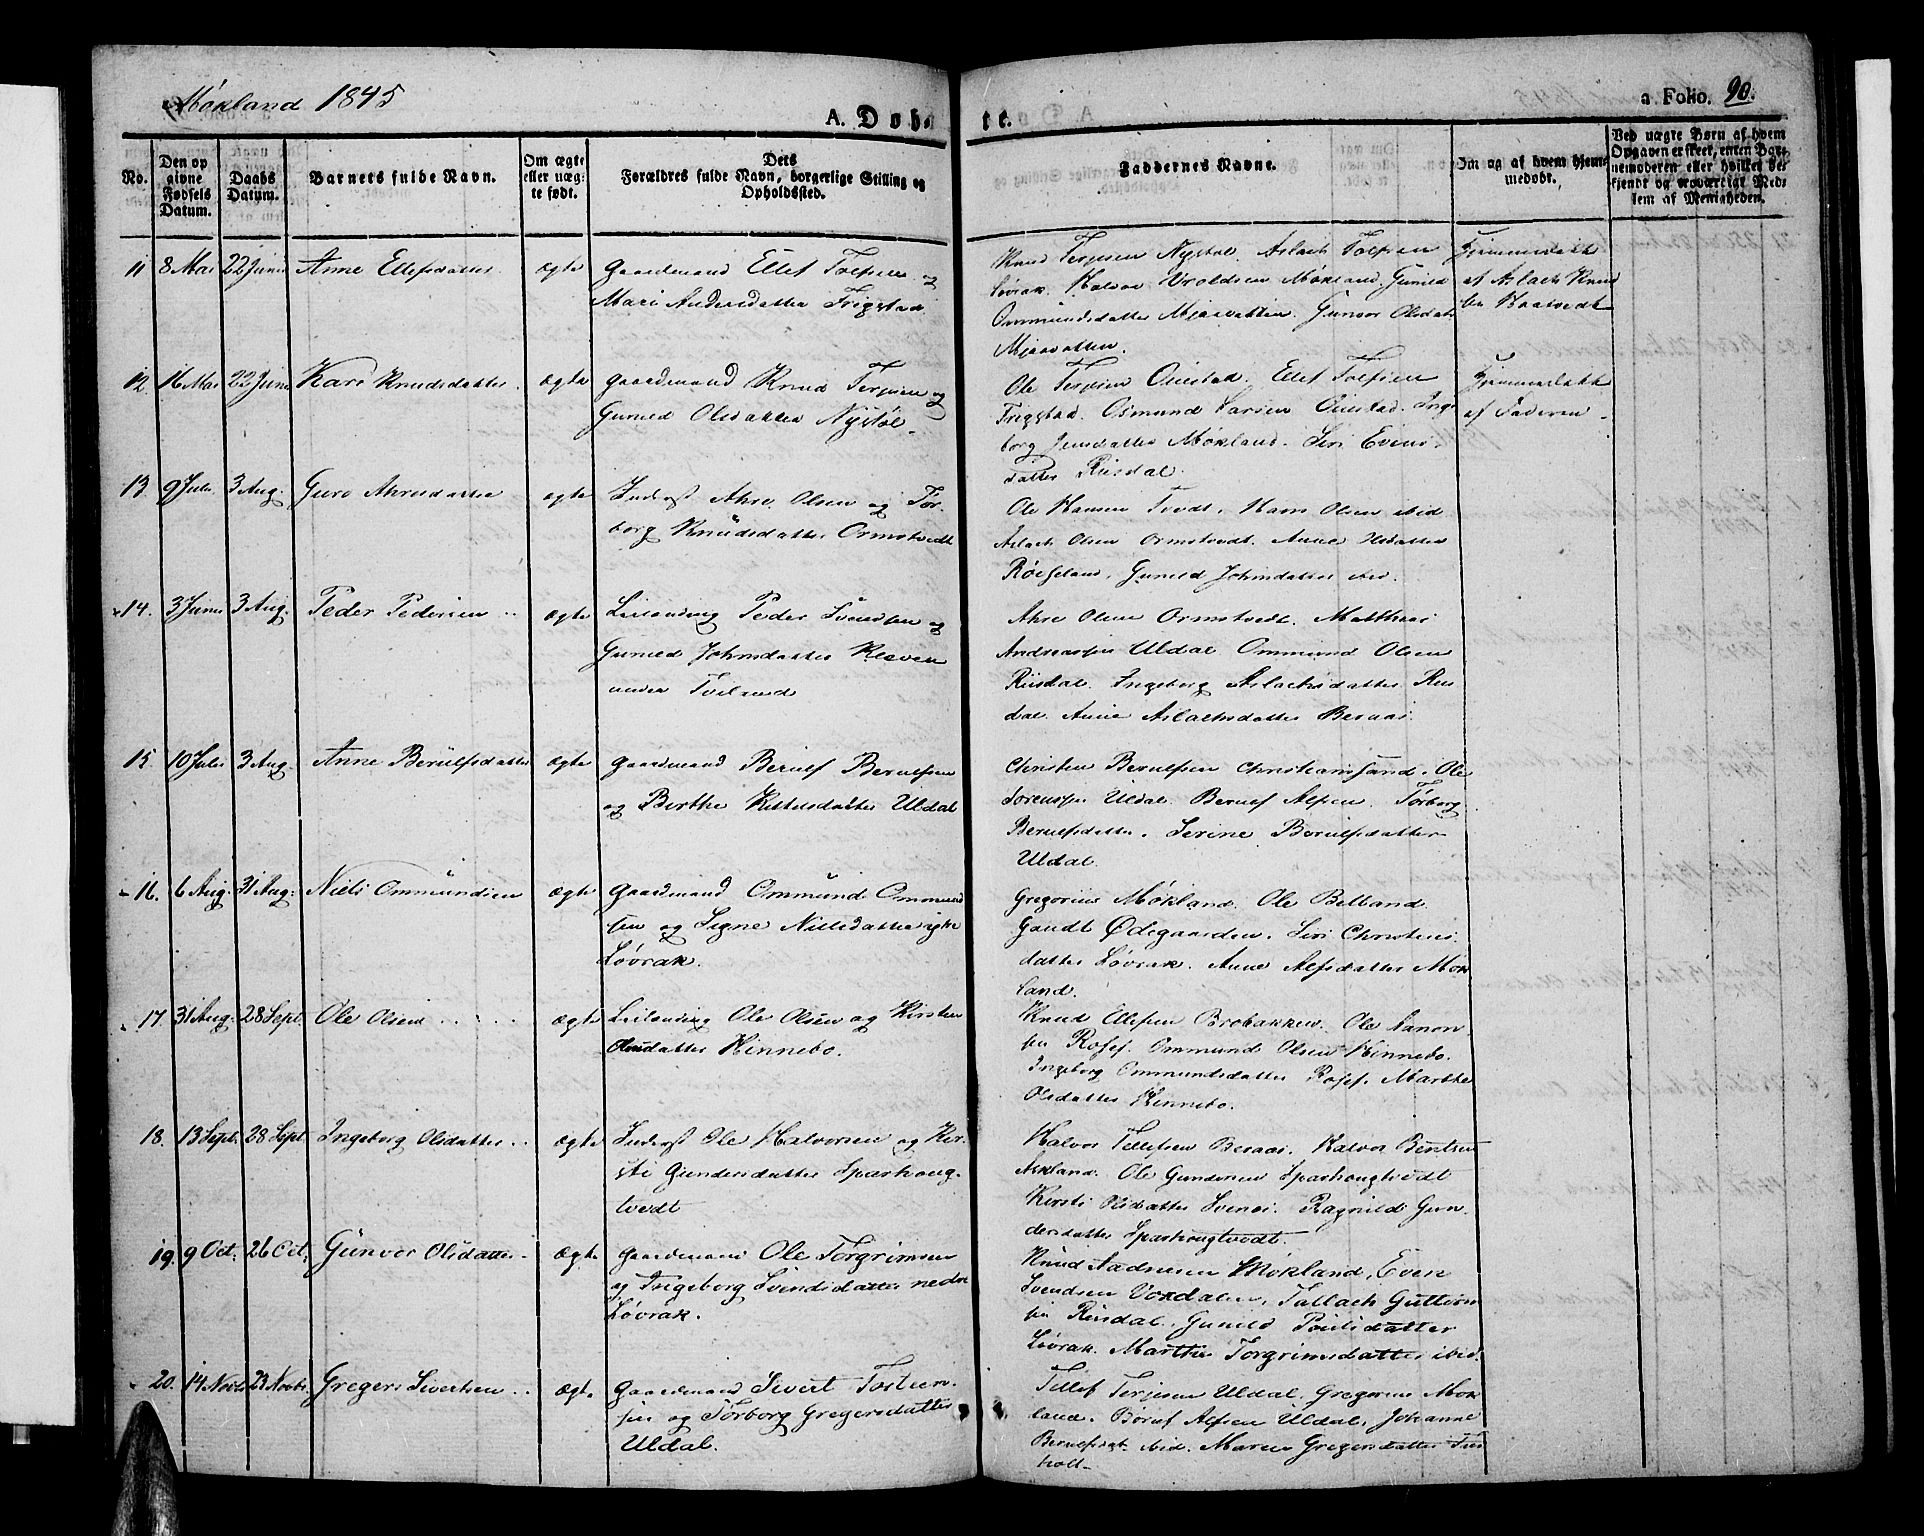 Møkland 1845
A. Døbte.
a Folio. 90.
No.
Den opgivne Fødsels Datum.
Daabs Datum.
Barnets fulde Navn.
Om ægte eller uægte født.
Dets Forældres fulde Navn, borgerlige Stilling og Opholdssted.
Faddernes Navne.
Om og af hvem hjemmedøbt.
Ved uægte Børn af hvem
Opgaven er skeet, enten Bar-
nemoderen eller hvilket be-
kjendt og troværdigt Med-
lem af Menigheden.
11 8 Mai 22 Juni Anne Ellefsdatter ægte Gaardmand Ellef Tolfsen og
Mari Andersdatter Frigstad
Knud Terjesen Nystøl. Aslach Tolfsen
Løvrak. Halvor Wroldsen Møkland. Gunild
Ommundsdatter Mjaavatten. Gunvor Olsdatt.
Mjaavatten.
Hjemmedøbt
af Aslach Knud
sen Baasvedt
12. 16 Mai 22 Juni Kari Knudsdatter. ægte Gaardmand Knud Terjesen og
Gunild Olsdatter Nystøl
Ole Terjesen Ouestad. Ellef Tolfsen
Frigstad. Osmund Larsen Ouestad. Inge
borg Jensdatter Møkland. Siri Evens
datter Riisdal.
Hjemmedøbt
af Faderen
13 9 Juli 3 Aug. Guro Ahresdatter ægte Inderst Ahre Olsen og Tor
borg Knudsdatter Ormstvedt
Ole Hansen Tvedt. Hans Olsen ibid
Aslach Olsen Ormstvedt. Anne Olsdatter
Røiseland. Gunild Johnsdatter ibid.
14. 3 Juni 3 Aug. Peder Pedersen ægte Leilænding Peder Svendsen og
Gunild Johnsdatter Kleven
under Tveland
Ahre Olsen Ormstvedt. Matthias
Andreassen Uldal. Ommund Olsen
Riisdal. Ingeborg Aslachsdatter Riis
dal. Anne Aslachsdatter Beraas.
15. 10 Juli 3 Aug. Anne Berulfsdatter ægte Gaardmand Berulf Berulfsen
og Berthe Kittelsdatter Uldal
Christen Berulfsen Christiansand. Ole
Sorenssen Uldal. Berulf Alfsen. Torborg
Berulfsdatter. Serine Berulfsdatter
Uldal.
16. 6 Aug. 31 Aug. Niels Ommundsen ægte Gaardmand Ommund Ommund
sen og Signe Nielsdatter
Løvrak.
Gregorius Møkland. Ole Betland
Gaudt Ødegaarden. Siri Christens
datter Løvrak. Anne Alfsdatter Møk
land.
17. 31 Aug. 28 Sept. Ole Olsen ægte Leilænding Ole Olsen og Kirsten
Olsdatter Hinnebo.
Knud Ellefsen Brobakken. Ole Aanon
sen Rosef. Ommund Olsen Hinnebo.
Ingeborg Ommundsdatter Rosef. Marthe
Olsdatter Hinnebo.
18. 13 Sept. 28 Sept. Ingeborg Olsdatter ægte Inderst Ole Halvorsen og Kir
sti Gundersdatter Sparhoug-
tvedt
Halvor Tellefsen Beraas. Halvor Bentsen
Askland. Ole Gundersen Sparhougtvedt
Kirsti Olsdatter Svenes. Ragnild Gun
dersdatter Sparhougtvedt.
19. 9 Oct. 26 Oct. Gunvor Olsdatter ægte Gaardmand Ole Torgrimsen
og Ingeborg Svendsdatter nedre
Løvrak.
Knud Aadnesen Møkland, Even
Svendsen Vordalen, Tallach Guttorm
sen Riisdal, Gunild Poulsdatter
Løvrak. Marthe Torgrimsdatter ibid.
20. 14 Novb. 23 Novb. Gregers Sivertsen ægte Gaardmand Sivert Tostein
sen og Torborg Gregersdatter
Uldal.
Tellef Terjesen Uldal, Gregorius Møk
land. Børuf Alfsen Uldal, Johanne
Berulfsdat. ibid. Maren Gregersdatter